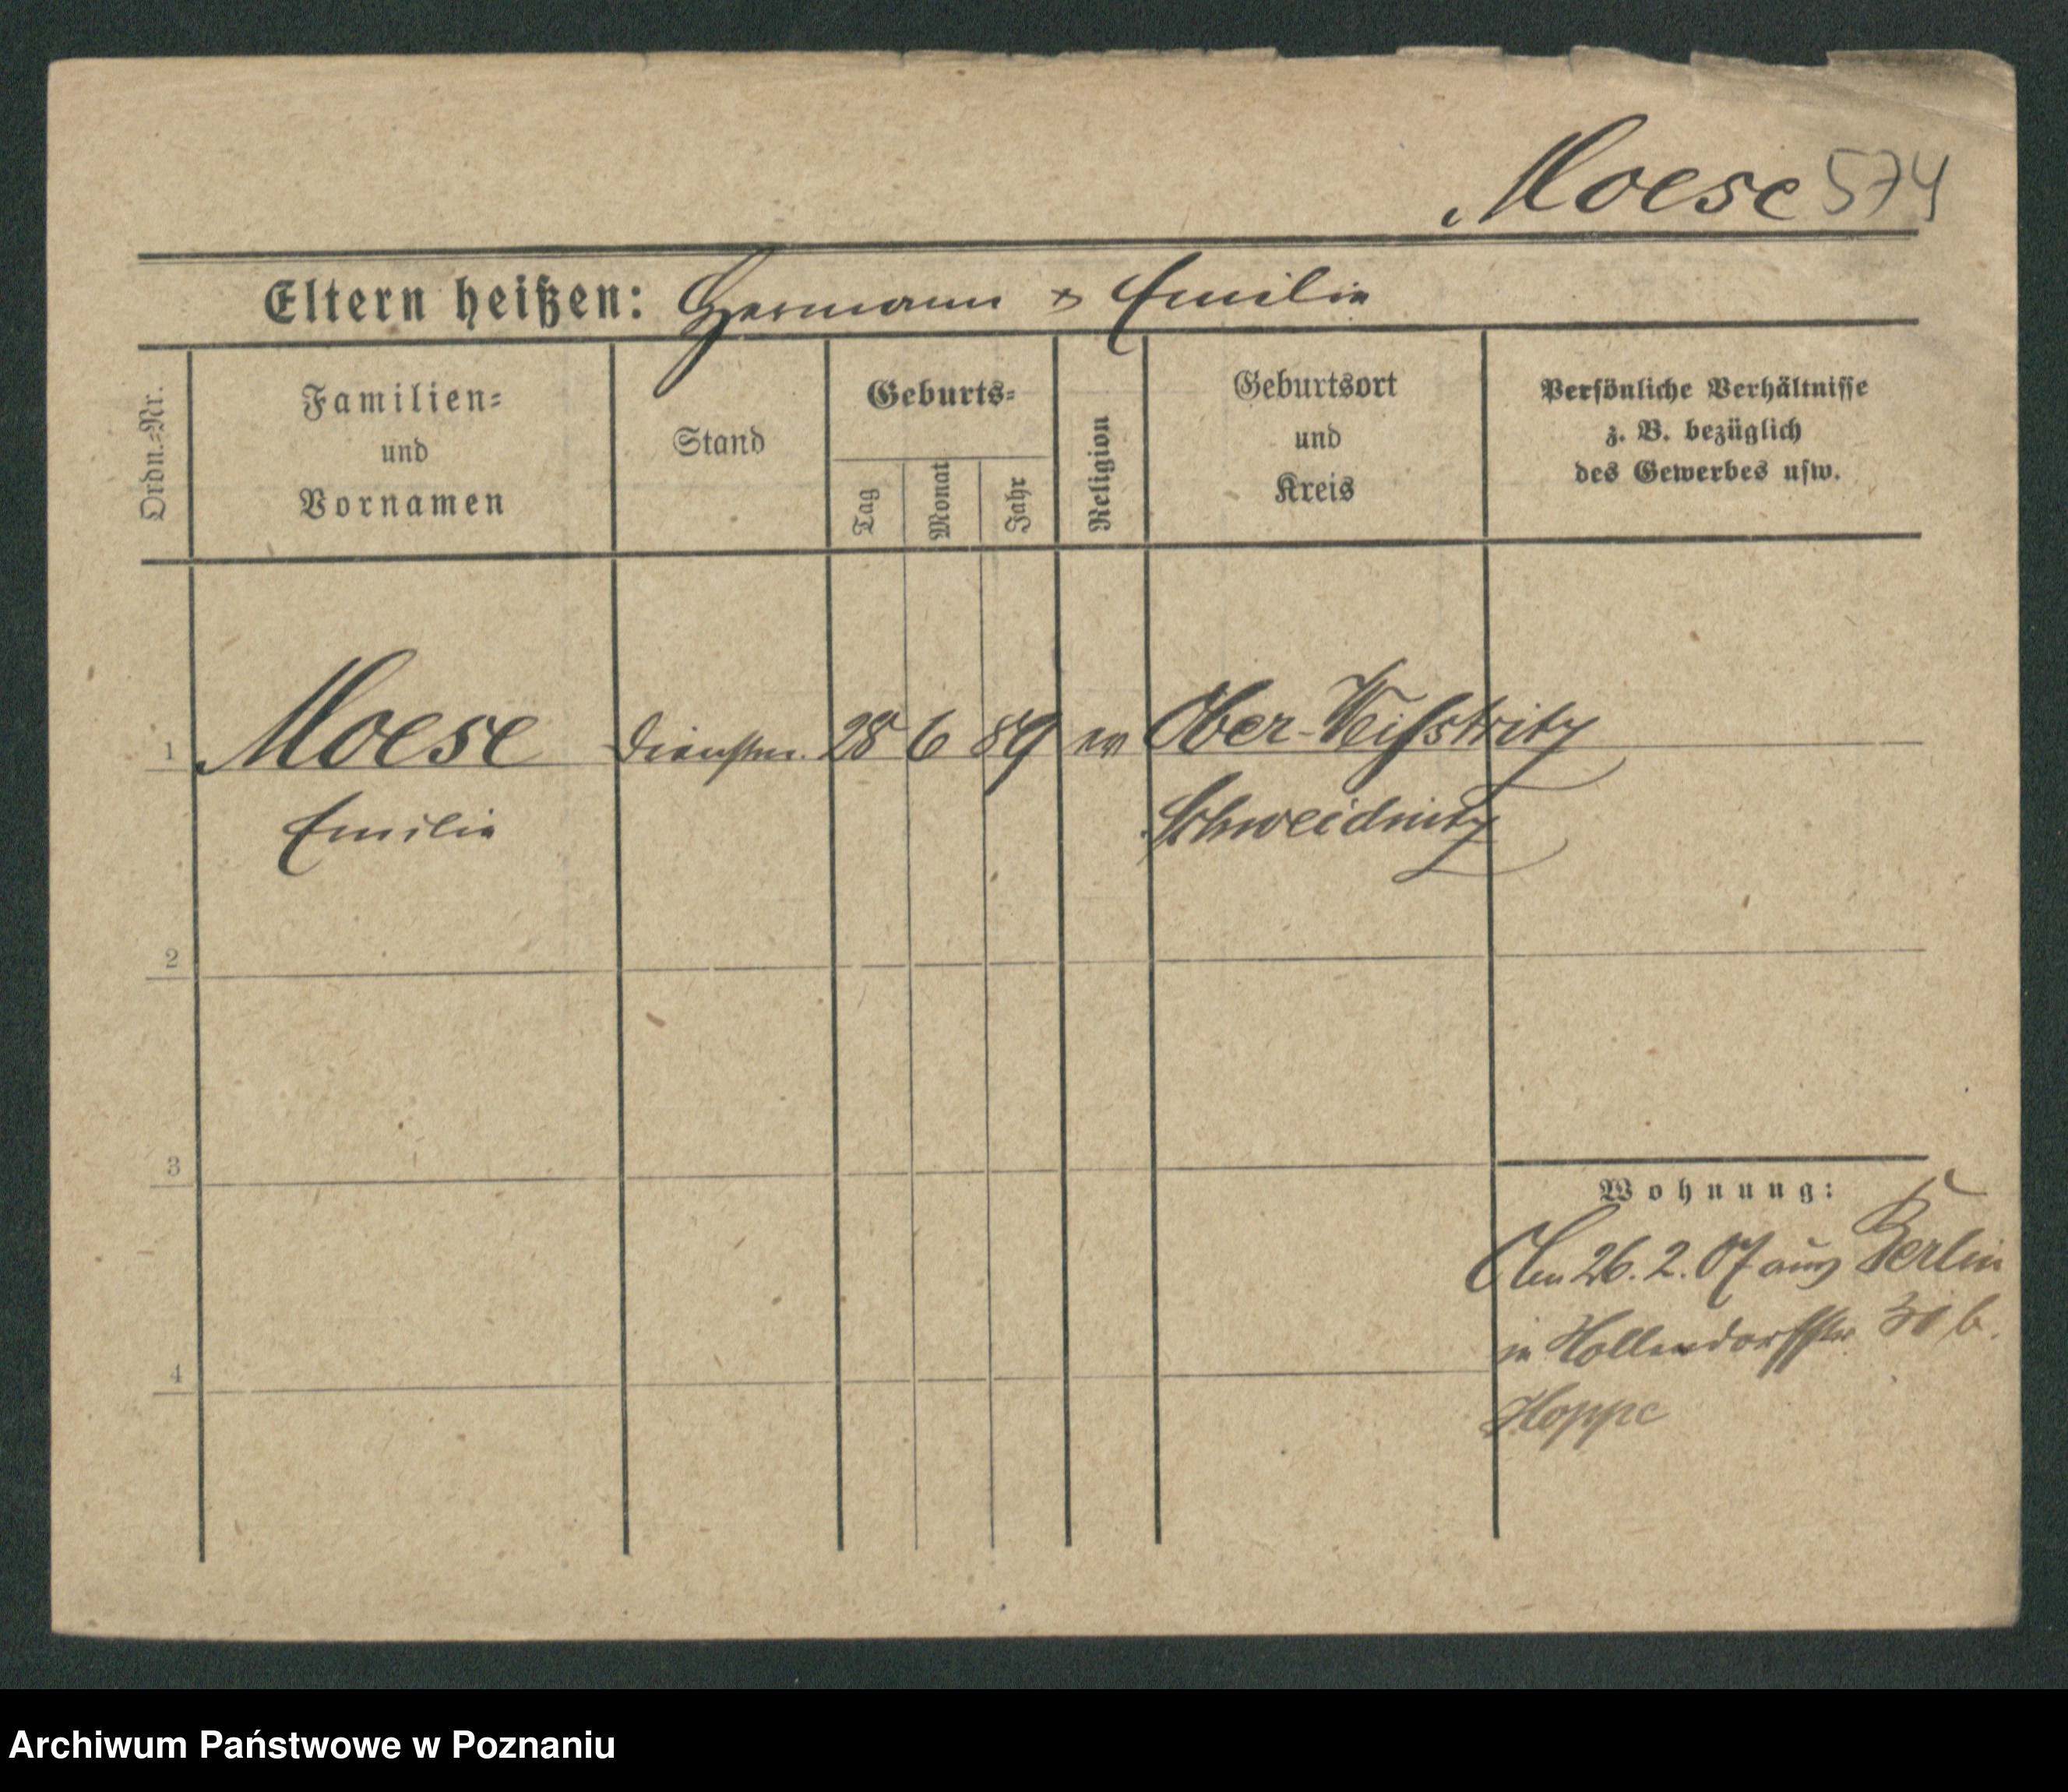 Moese 574
Eltern heißen: Hermann & Emilie
Ordn.=Nr.
Familien=
und
Vornamen
Stand
Geburts=
Tag
Monat
Jahr
Religion
Geburtsort
und
Kreis
Persönliche Verhältnisse
z. B. bezüglich
des Gewerbes usw.
1 Moese Dienstm. 28 6 89 ev Ober-Weißtritz
Emilie Schweidnitz
2
3
Wohnung:
Am 26. 2. 07 aus Berlin
in Hollendorffstr. 30 b.
4
Hoppe
Archiwum Państwowe w Poznaniu